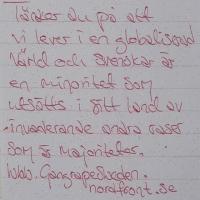 Tänker du på att
vi lever i en globaliserad
värld och svenskar är
en minoritet som
utsätts i sitt land av
invaderande andra raser
som är majoriteter.
www.Gangrapesweden.
nordfront.se